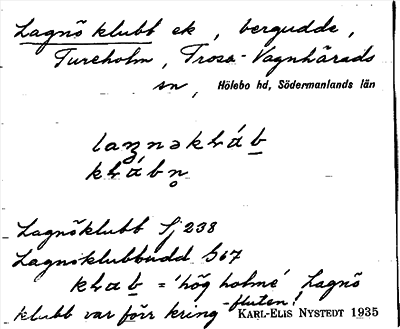 Lagnö klubb ek, bergudde,
Tureholm, Trosa-Vagnhärads
sn, Hölebo hd, Södermanlands län
Lagnöklubb Sj 238
Lagnöklubbudd
= 'hög holme' Lagnö
klubb var förr kring-fluten!
KARL-ELIS NYSTEDT 1935